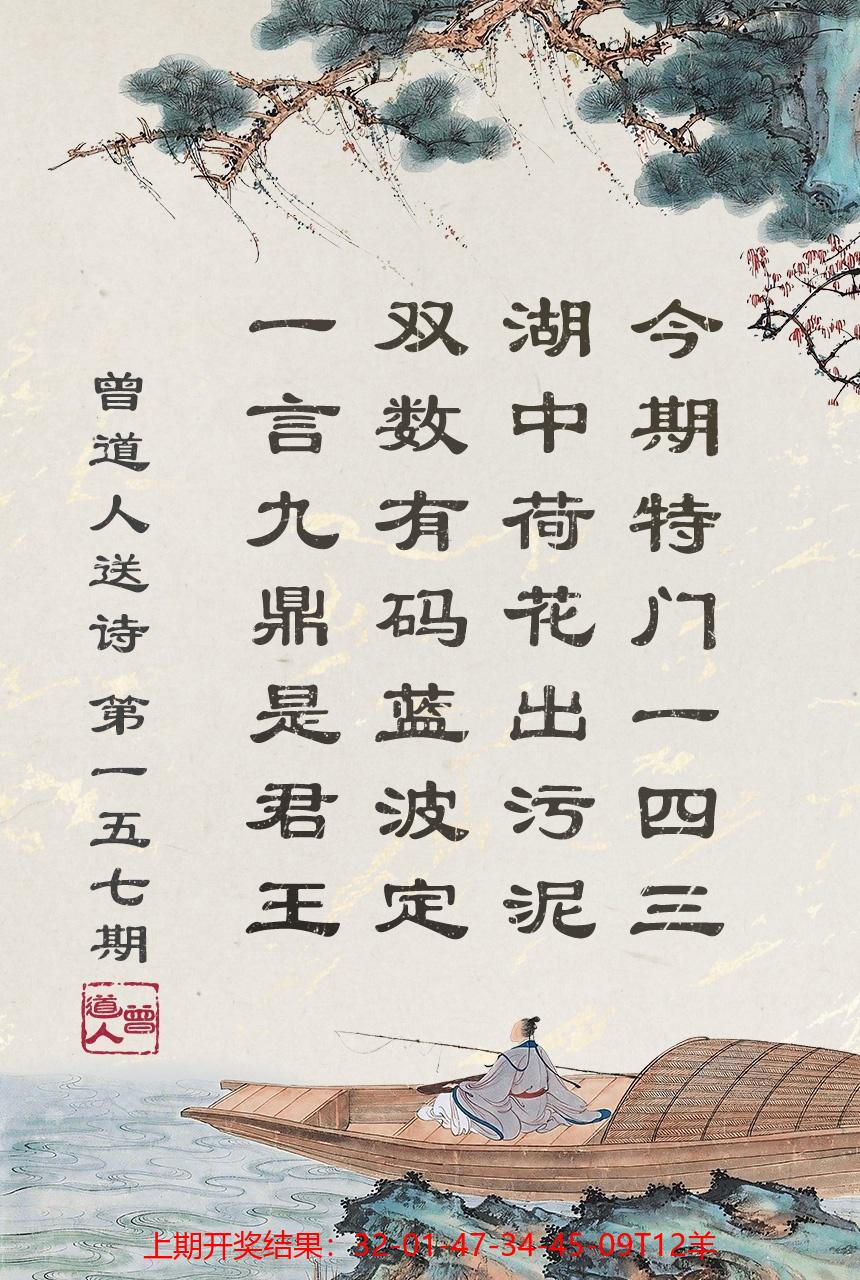 今期特门一四三
湖中荷花出污泥
双数有码蓝波定
一言九鼎是君王
曾道人送诗 第一五七期
曾道人
上期开奖结果：32-01-47-34-45-09T12羊